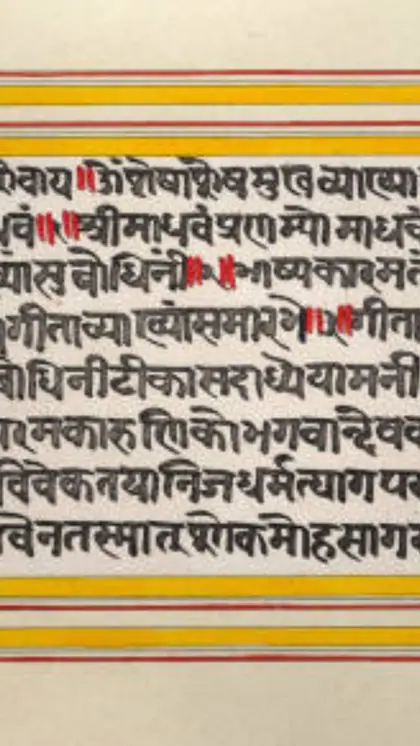 शेवाय ॥ॐ शेषाशेषमुखव्याख्या
धवं॥ ॥श्रीमाधवं प्रणम्यो माधवं
ख्यांसुबोधिनीं॥ ॥भाष्यकारमतं
गीताव्याख्यांसमारभे॥ ॥गीता
बोधिनीटीकासदाध्येयामनी
रमकारुणिकोभगवान्देवक
विवेकतयानिजधर्मत्यागपर
वेनतस्मात् शोकमोहसागर